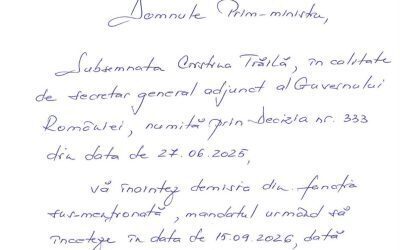 Domnule Prim-ministru,
Subsemnata Cristina Trăilă, în calitate
de secretar general adjunct al Guvernului
României, numită prin Decizia nr. 333
din data de 27.06.2025,
vă înaintez demisia din funcția
sus-menționată, mandatul urmând să
înceteze în data de 15.09.2026, dată